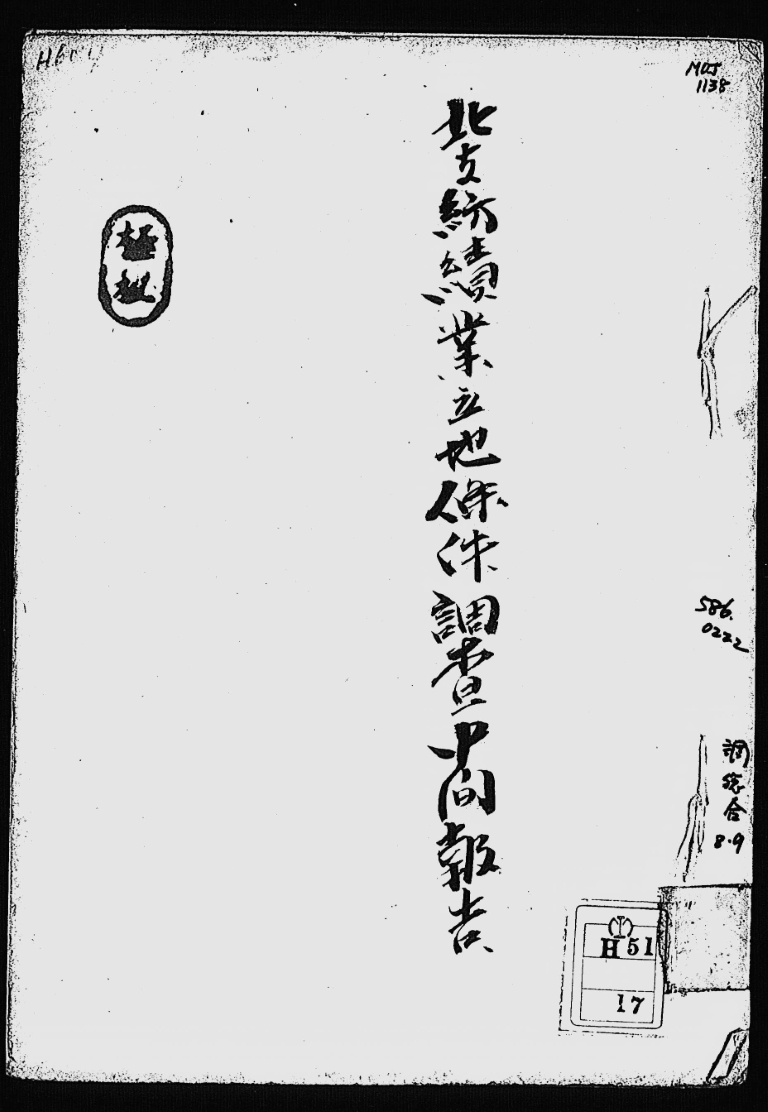 MOJ
1138
北支紡績業立地條件調査中間報告
極秘
586.
0222
調
合
8.9
(工)
H 51
17